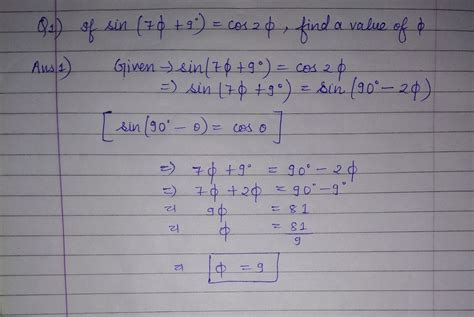 Q1) If sin (7ϕ + 9°) = cos 2ϕ, find a value of ϕ
Ans1) Given → sin(7ϕ + 9°) = cos 2ϕ
=> sin (7ϕ + 9°) = sin (90° - 2ϕ)
[sin (90° - θ) = cos θ]
=) 7ϕ + 9° = 90° - 2ϕ
=) 7ϕ + 2ϕ = 90° - 9°
या 9ϕ = 81
या ϕ = 81/9
या ϕ = 9